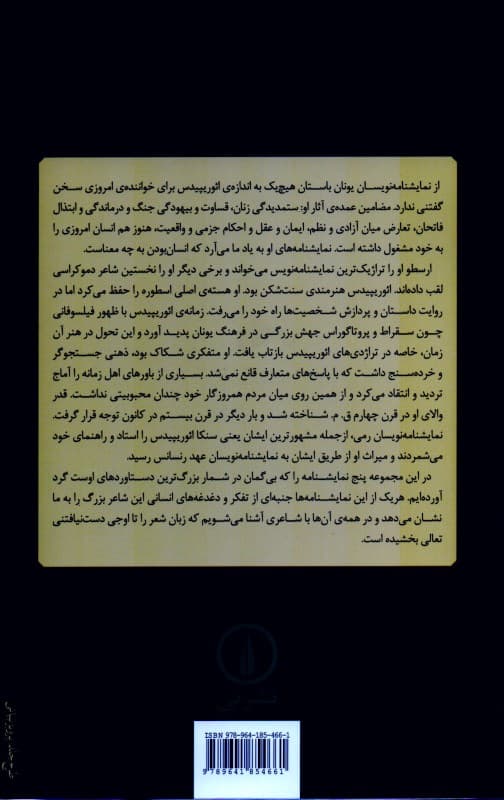 از نمایشنامه‌نویسان یونان باستان هیچ‌یک به اندازه‌ی ائوریپیدس برای خواننده‌ی امروزی سخن
گفتنی ندارد. مضامین عمده‌ی آثار او: ستمدیدگی زنان، قساوت و بیهودگی جنگ و درماندگی و ابتذال
فاتحان، تعارض میان آزادی و نظم، ایمان و عقل و احکام جزمی و واقعیت، هنوز هم انسان امروزی را
به خود مشغول داشته است. نمایشنامه‌های او به یاد ما می‌آرد که انسان‌بودن به چه معناست.
ارسطو او را تراژیک‌ترین نمایشنامه‌نویس می‌خواند و برخی دیگر او را نخستین شاعر دموکراسی
لقب داده‌اند. ائوریپیدس هنرمندی سنت‌شکن بود. او هسته‌ی اصلی اسطوره را حفظ می‌کرد اما در
روایت داستان و پردازش شخصیت‌ها راه خود را می‌رفت. زمانه‌ی ائوریپیدس با ظهور فیلسوفانی
چون سقراط و پروتاگوراس جهش بزرگی در فرهنگ یونان پدید آورد و این تحول در هنر آن
زمان، خاصه در تراژدی‌های ائوریپیدس بازتاب یافت. او متفکری شکاک بود، ذهنی جستجوگر
و خرده‌سنج داشت که با پاسخ‌های متعارف قانع نمی‌شد. بسیاری از باورهای اهل زمانه را آماج
تردید و انتقاد می‌کرد و از همین روی میان مردم همروزگار خود چندان محبوبیتی نداشت. قدر
والای او در قرن چهارم ق. م. شناخته شد و بار دیگر در قرن بیستم در کانون توجه قرار گرفت.
نمایشنامه‌نویسان رمی، ازجمله مشهورترین ایشان یعنی سنکا ائوریپیدس را استاد و راهنمای خود
می‌شمردند و میراث او از طریق ایشان به نمایشنامه‌نویسان عهد رنسانس رسید.
در این مجموعه پنج نمایشنامه را که بی‌گمان در شمار بزرگ‌ترین دستاوردهای اوست گرد
آورده‌ایم. هریک از این نمایشنامه‌ها جنبه‌ای از تفکر و دغدغه‌های انسانی این شاعر بزرگ را به ما
نشان می‌دهد و در همه‌ی آن‌ها با شاعری آشنا می‌شویم که زبان شعر را تا اوجی دست‌نیافتنی
تعالی بخشیده است.
نشر نی
ISBN 978-964-185-466-1
9 789641 854661